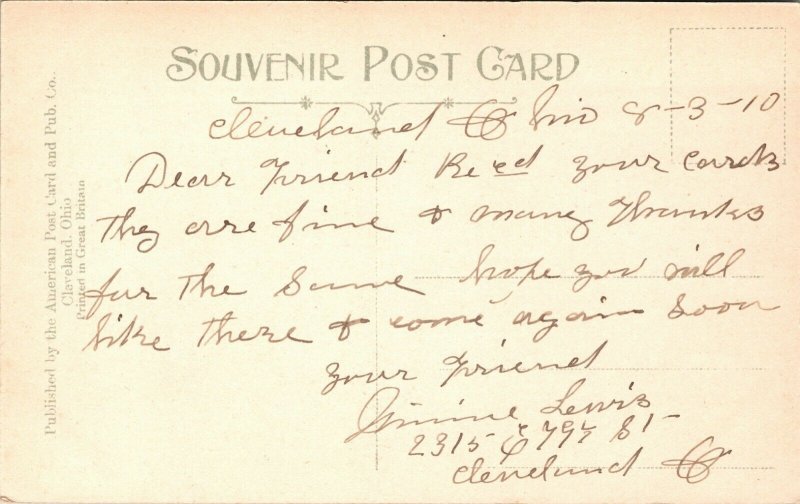 SOUVENIR POST CARD
Cleveland Ohio 8-3-10
Dear Friend Rec'd your cards
they are fine & many Thanks
for the Same hope you will
like these & come again Soon
your Friend
Lewis
2315 St-
Cleveland O
Published by the American Post Card and Pub. Co.,
Cleveland, Ohio
Printed in Great Britain